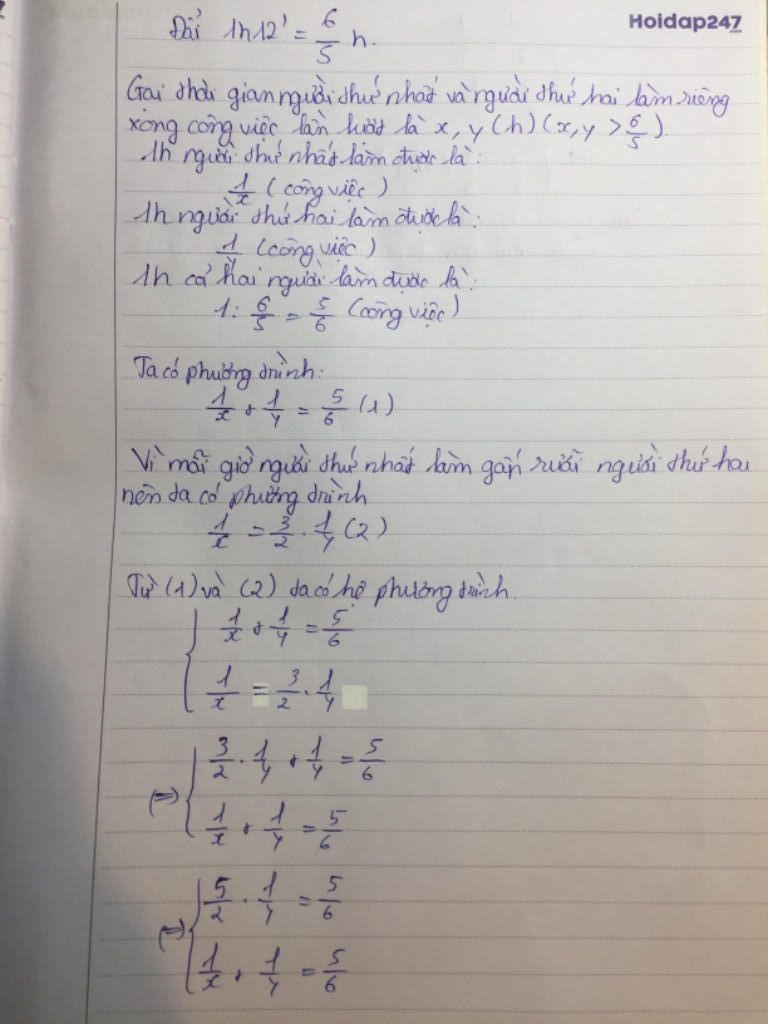 Hoidap247
Đổi 1h12' = 6/5 h.
Gọi thời gian người thứ nhất và người thứ hai làm riêng
xong công việc lần lượt là x, y (h) (x, y > 6/5)
1h người thứ nhất làm được là:
1/x (công việc)
1h người thứ hai làm được là:
1/y (công việc)
1h cả hai người làm được là:
1 : 6/5 = 5/6 (công việc)
Ta có phương trình:
1/x + 1/y = 5/6 (1)
Vì mỗi giờ người thứ nhất làm gấp rưỡi người thứ hai
nên ta có phương trình
1/x = 3/2 . 1/y (2)
Từ (1) và (2) ta có hệ phương trình.
{ 1/x + 1/y = 5/6
1/x = 3/2 . 1/y
(=) { 3/2 . 1/y + 1/y = 5/6
1/x + 1/y = 5/6
(=) { 5/2 . 1/y = 5/6
1/x + 1/y = 5/6